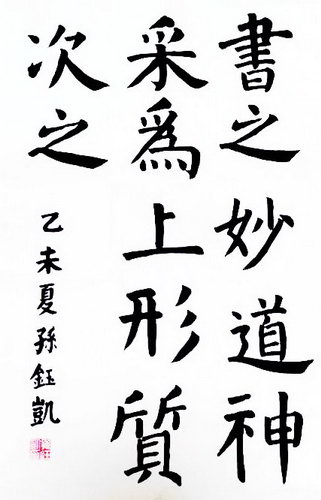 書之妙道神
采爲上形質
次之
乙未夏孫鈺凱